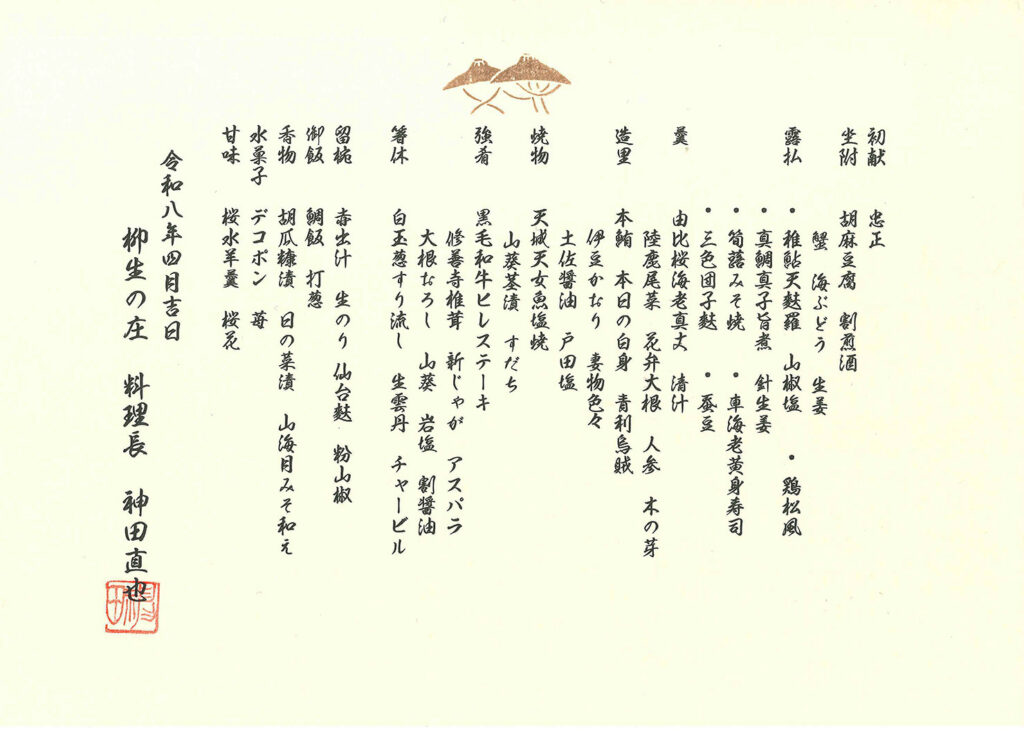 初献 忠正
坐附 胡麻豆腐 割煎酒
蟹 海ぶどう 生姜
露払 ・稚鮎天麩羅 山椒塩 ・鶏松風
・真鯛真子旨煮 針生姜
・筍蕗みそ焼 ・車海老黄身寿司
・三色団子麩 ・蚕豆
羹 由比桜海老真丈 清汁
陸鹿尾菜 花弁大根 人参 木の芽
造里 本鮪 本日の白身 青利烏賊
伊豆かおり 妻物色々
土佐醤油 戸田塩
焼物 天城天女魚塩焼
山葵茎漬 すだち
強肴 黒毛和牛ヒレステーキ
修善寺椎茸 新じゃが アスパラ
大根おろし 山葵 岩塩 割醤油
箸休 白玉葱すり流し 生雲丹 チャービル
留椀 赤出汁 生のり 仙台麩 粉山椒
御飯 鯛飯 打葱
香物 胡瓜糠漬 日の菜漬 山海月みそ和え
水菓子 デコポン 苺
甘味 桜水羊羹 桜花
令和八年四月吉日
柳生の庄 料理長 神田直也